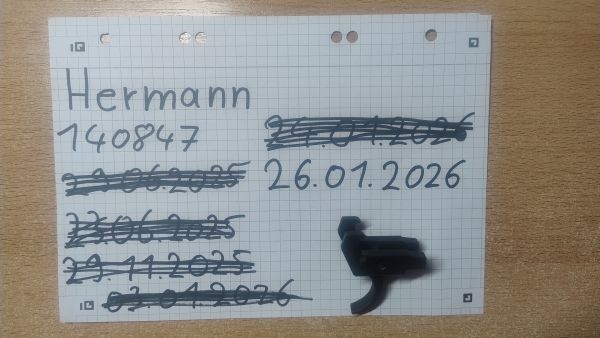 Hermann
140847
24.01.2026
29.06.2025
26.01.2026
23.06.2025
29.11.2025
03.01.2026